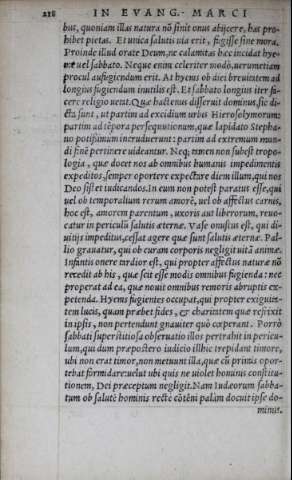 218 IN EVANG. MARCI
bus, quoniam illas natura nō sinit onus abijcere, has pro-
hibet pietas. Et unica salutis uia erit, fugisse sine mora.
Proinde illud orate Deum, ne calamitas hæc incidat hye-
me uel sabbato. Neque enim celeriter modò, uerumetiam
procul aufugiendum erit. At hyems ob diei breuitatem ad
longius fugiendum inutilis est. Et sabbato longius iter fa-
cere religio uetat. Quæ hactenus disseruit dominus, sic di-
cta sunt, ut partim ad excidium urbis Hierosolymorum:
partim ad tēpora persequutionum, quæ lapidato Stepha-
no potissimum incruduerunt: partim ad extremum mun-
di finē pertinere uideantur. Neq; tamen non subest tropo-
logia, quæ docet nos ab omnibus humanis impedimentis
expeditos, semper oportere expectare diem illum, qui nos
Deo sistet iudicandos. In eum non potest paratus esse, qui
uel ob temporalium rerum amorē, uel ob affectus carnis,
hoc est, amorem parentum, uxoris aut liberorum, reuo-
catur in periculū salutis æternæ. Vase onustus est, qui di-
uitijs impeditus, cessat agere quæ sunt salutis æternæ. Pal-
lio grauatur, qui ob curam corporis negligit uitā animæ.
Infantis onere tardior est, qui propter affectus naturæ nō
recedit ab his, quæ scit esse modis omnibus fugienda: nec
properat ad ea, quæ nouit omnibus remoris abruptis ex-
petenda. Hyems fugientes occupat, qui propter exiguita-
tem lucis, quam præbet fides, & charitatem quæ refrixit
in ipsis, non pertendunt gnauiter quò cœperant. Porrò
sabbati superstitiosa obseruatio illos pertrahit in pericu-
lum, qui dum præpostero iudicio illhic trepidant timore,
ubi non erat timor, non metuunt illa, quæ cū primis opor-
tebat formidare: uelut ubi quis ne uiolet hominis constitu-
tionem, Dei præceptum negligit. Nam Iudæorum sabba-
tum ob salutē hominis rectè cōtēni palàm docuit ipse do-
minus.